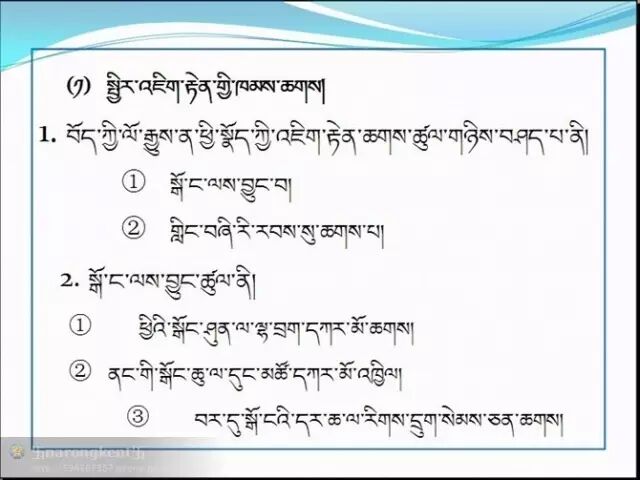 (༡) སྤྱིར་འཇིག་རྟེན་གྱི་ཁམས་ཆགས།
1. བོད་ཀྱི་ལོ་རྒྱུས་ན་ཕྱི་སྣོད་ཀྱི་འཇིག་རྟེན་ཆགས་ཚུལ་གཉིས་བཤད་པ་ནི།
① སྒོ་ང་ལས་བྱུང་བ།
② གླིང་བཞི་རི་རབས་སུ་ཆགས་པ།
2. སྒོ་ང་ལས་བྱུང་ཚུལ་ནི།
① ཕྱིའི་སྒོང་ཤུན་ལ་ལྷ་བྲག་དཀར་མོ་ཆགས།
② ནང་གི་སྒོང་ཆུ་ལ་དུང་མཚོ་དཀར་མོ་འཁྱིལ།
③ བར་དུ་སྒོ་ངའི་དར་ཆ་ལ་རིགས་དྲུག་སེམས་ཅན་ཆགས།